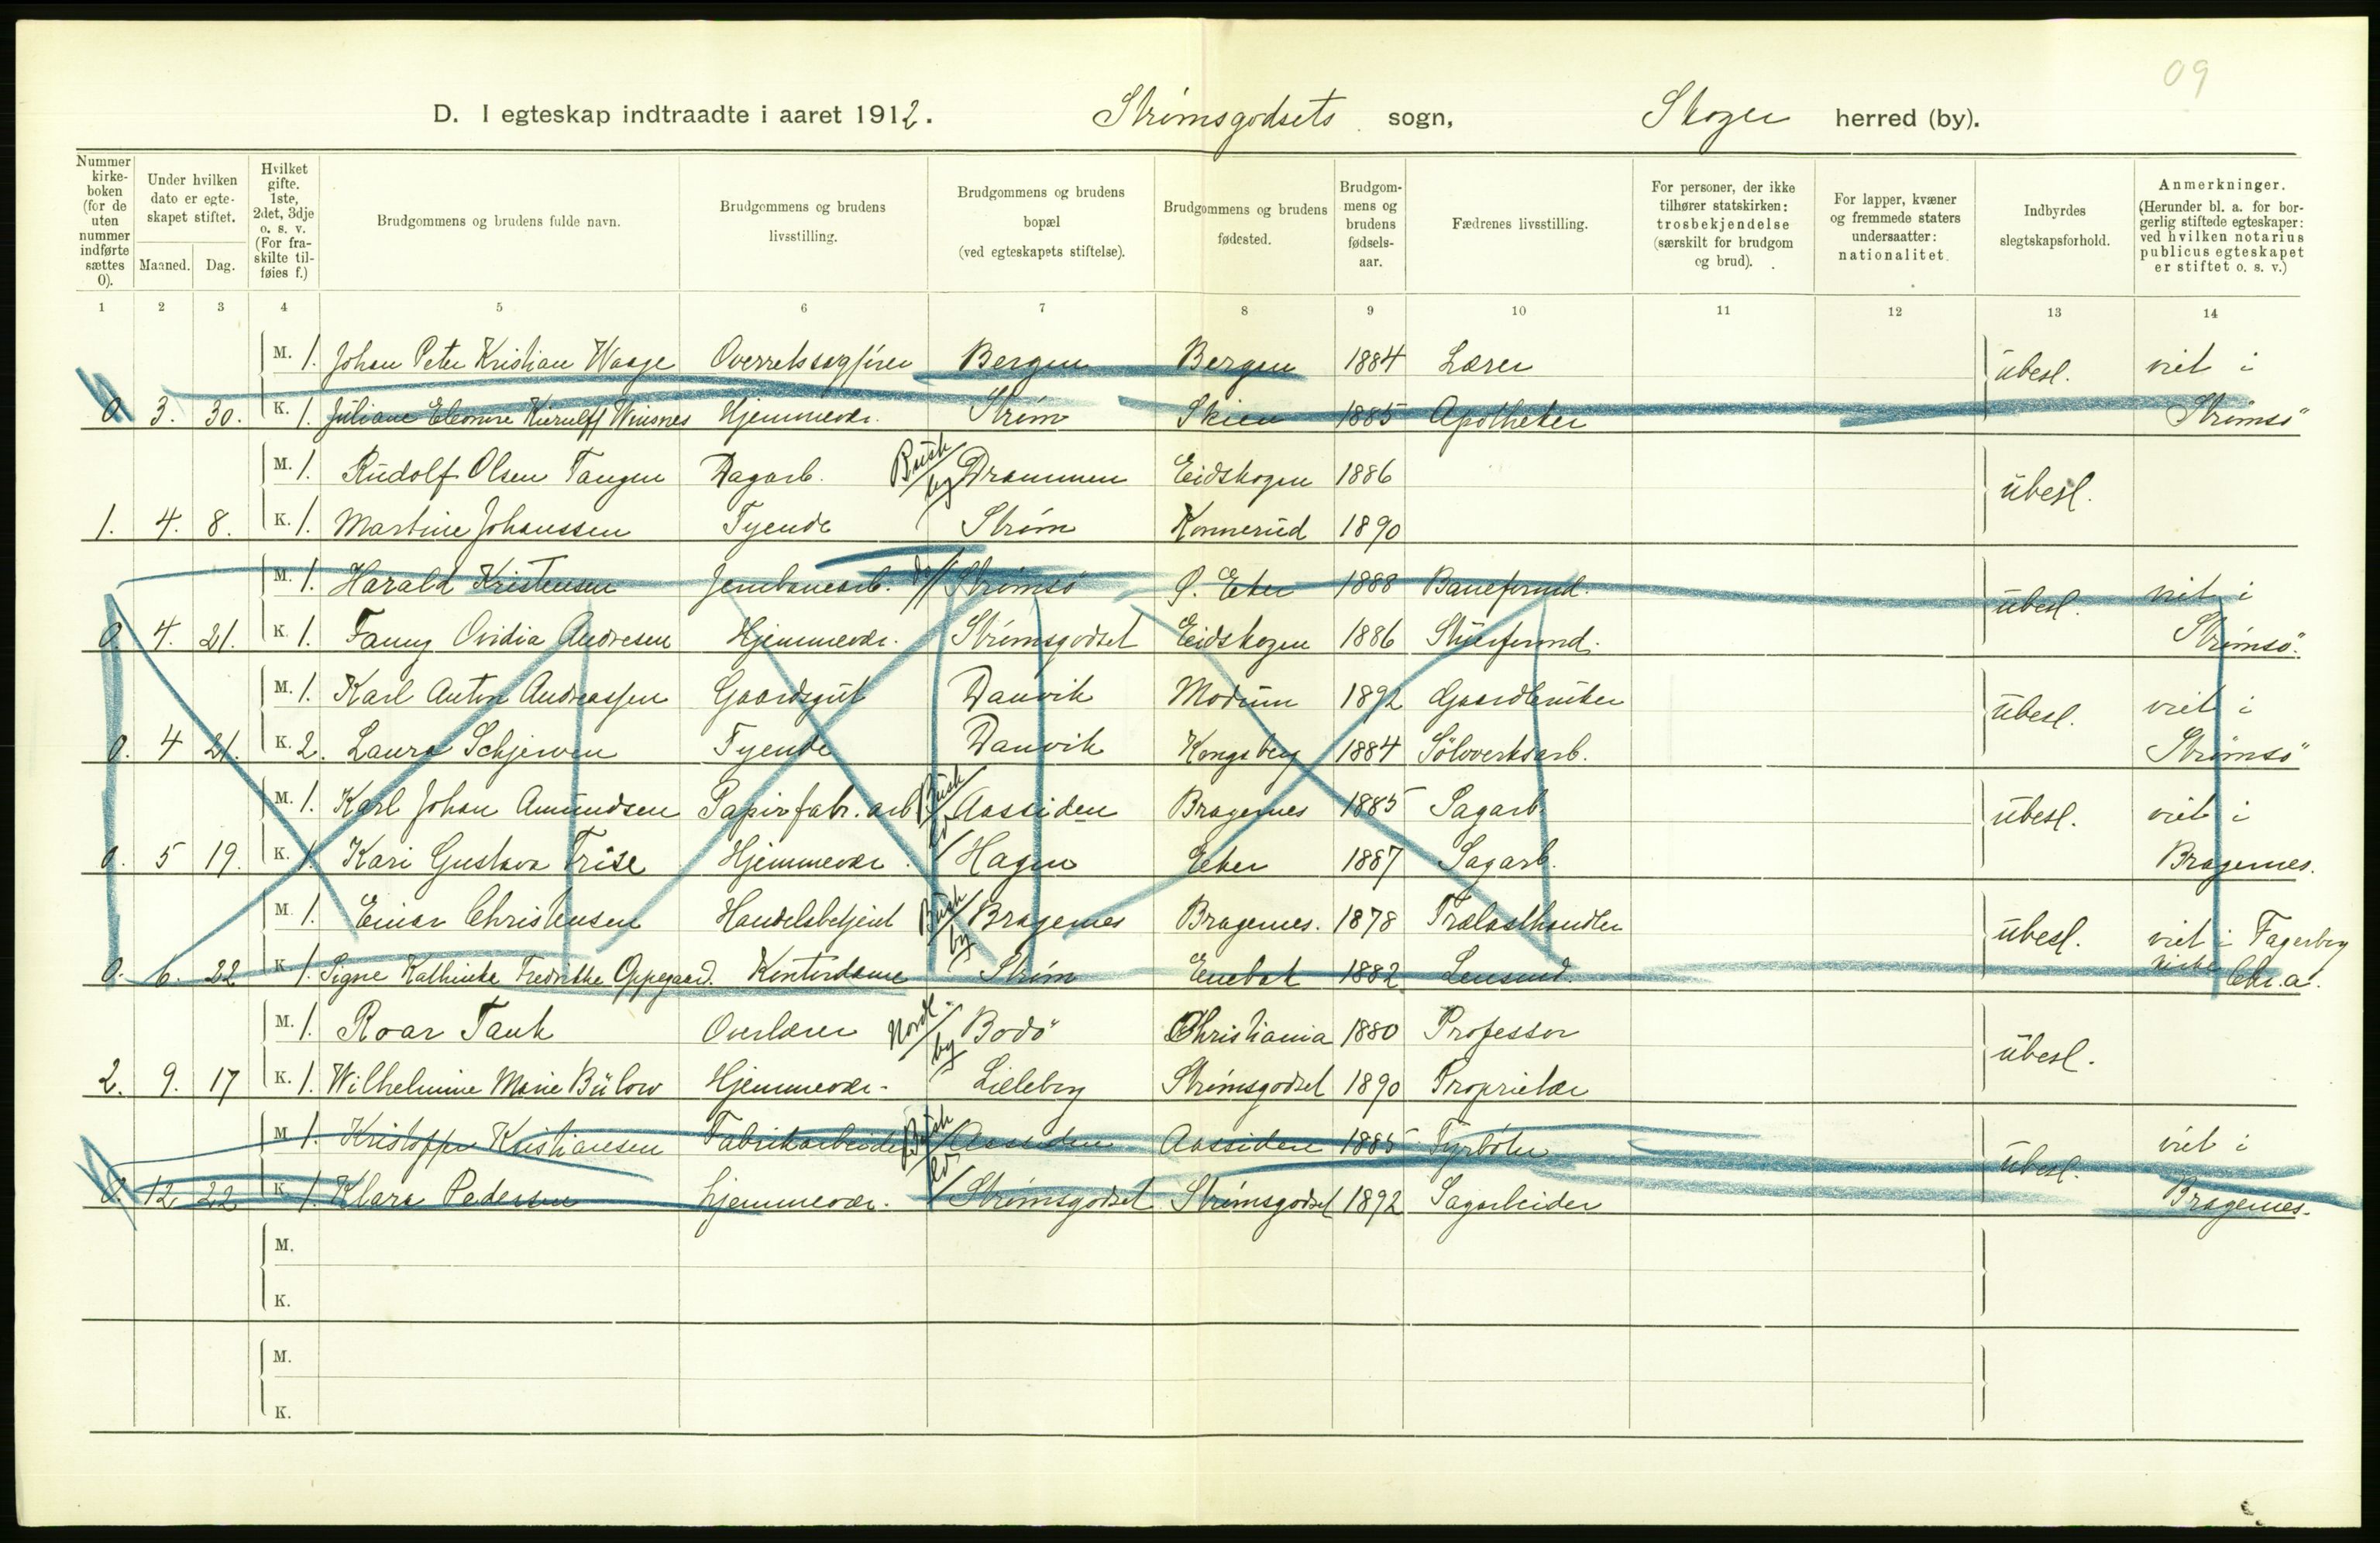 09
D. I egteskap indtraadte i aaret 1912. Strömsgodsets sogn, Skoger herred (by).
Nummer kirkeboken (for de uten nummer indførte sættes 0).
Under hvilken dato er egteskapet stiftet.
Maaned. Dag.
Hvilket gifte. 1ste, 2det, 3dje o. s. v. (For fraskilte tilføies f.)
Brudgommens og brudens fulde navn.
Brudgommens og brudens livsstilling.
Brudgommens og brudens bopæl (ved egteskapets stiftelse).
Brudgommens og brudens fødested.
Brudgommens og brudens fødselsaar.
Fædrenes livsstilling.
For personer, der ikke tilhører statskirken: trosbekjendelse (særskilt for brudgom og brud).
For lapper, kvæner og fremmede staters undersaatter: nationalitet.
Indbyrdes slegtskapsforhold.
Anmerkninger. (Herunder bl. a. for borgerlig stiftede egteskaper: ved hvilken notarius publicus egteskapet er stiftet o. s. v.)
1 2 3 4 5 6 7 8 9 10 11 12 13 14
M. 1. Johan Peter Kristian Waage Overretssagförer Bergen Bergen 1884 Lærer übesl. viet i
0. 3. 30. K. 1. Juliane Eleonore Kierulff Winsnes Hjemmevær. Ström Skien 1885 Apotheker Strömsö
M. 1. Rüdolf Olsen Tangen Dagarb. Busk by Drammen Eidskogen 1886 übesl.
1. 4. 8. K. 1. Martine Johanssen Tyende Ström Konnerüd 1890
M. 1. Harald Kristensen Jernbanearb. do Strömsö Ö. Eker 1888 Baneformd. übesl. viet i
0. 4. 21. K. 1. Fanny Ovidia Andresen Hjemmevær. Strömsgodset Eidskogen 1886 Strömsö.
M. 1. Karl Anton Andreassen Gaardsgüt Danvik Modüm 1892 Gaardbrüker übesl. viet i
0. 4 21. K. 2. Laura Schjerven Tyende Danvik Kongsberg 1884 Sölvverksarb. Strömsö
M. 1. Karl Johan Amündsen Papirfabr. arb Busk Aassiden Bragernes 1885 Sagarb. übesl. viet i
0. 5 19. K. 1. Kari Gustava Hjemmevær. Hagen Eker 1887 Sagarb. Bragernes.
M. 1. Einar Christensen Handelsbetjent Busk by Bragernes Bragernes. 1878 Trælasthandler übesl. viet i Fagerborg
0. 6. 22 K. 1. Signe Kathinka Fredrikke Oppegaard. Kontordame Ström Enebak 1882 Lensmd. kirke Chr.a.
M. 1. Roar Tank Overlærer Nordl. by Bodö Christiania 1880 Professor übesl.
2. 9. 17 K. 1. Wilhelmine Marie Bülow Hjemmevær. Lilleborg Strömsgodset 1890 Proprietær
M. 1. Kristoffer Kristiansen Fabrikarbeider Busk Aassiden Aassiden 1885 Fyrböter übesl. viet i
0. 12. 22 K. 1. Klara Pedersen hjemmevær. Strömsgodset Strömsgodset 1892 Sagarbeider Bragernes.
M.
K.
M.
K.